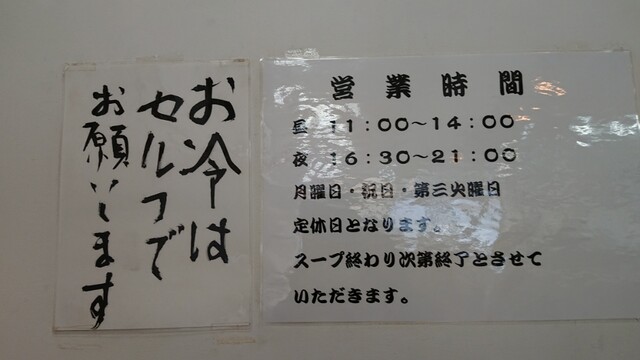 お冷は
セルフで
お願いします
営業時間
昼 11:00~14:00
夜 16:30~21:00
月曜日・祝日・第三火曜日
定休日となります。
スープ終わり次第終了とさせて
いただきます。